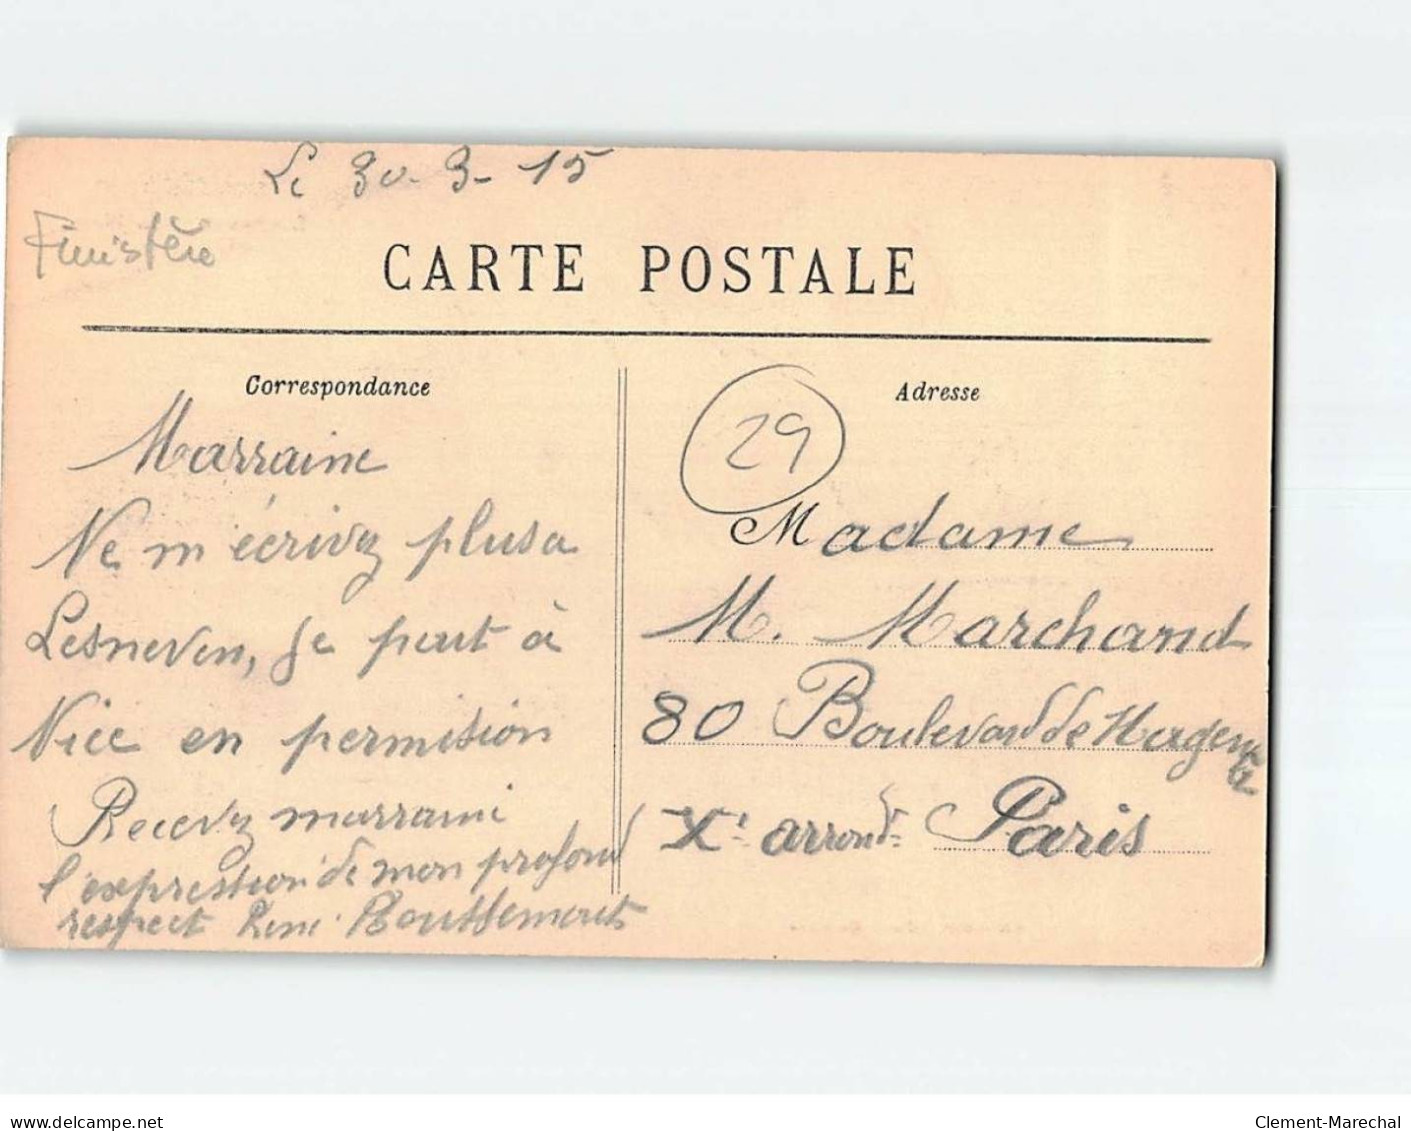 Le 30-3-15
Finistère
CARTE POSTALE
Correspondance
Marraine
Ne m'écrivez plus a
Lesneven, Je part à
Nice en permision
Recevez marraine
l'expression de mon profond
respect René
Adresse
29
Madame
M. Marchand
80 Boulevard de Magenta
Xe arrondt Paris
www.delcampe.net
Clement-Marechal